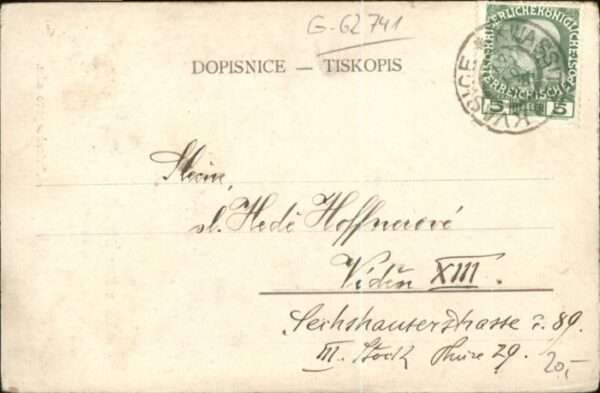 G-62741
DOPISNICE — TISKOPIS
KAISERLICHE KÖNIGLICHE
ÖSTERREICHISCHE
5 HELLER 5
KVASICE KWASSITZ
sl. Hedě Hoffnerové
Vídeň XIII.
Sechshauserstrasse č. 89.
III. Stock Thüre 29.
20,-